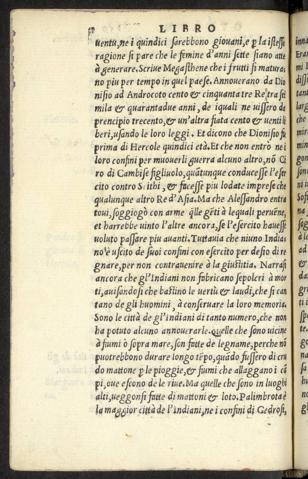 LIBRO
uentu, ne i quindici sarebbono giouani, e p la istessa
ragione si pare che le femine d'anni sette siano atte
à generare. Scriue Megasthene che i frutti si matura-
no piu per tempo in quel paese. Annouerano da Dio
nisio ad Androcoto cento & cinquanta tre Re, tra sei
mila & quarantadue anni, de iquali ne uissero da
prencipio trecento, & un'altra fiata cento & uenti li
beri, usando le loro leggi. Et dicono che Dionisio fu
prima di Hercole quindici età. Et che non entrò ne i
loro confini per muouerli guerra alcuno altro, nō Ci
ro di Cambise figliuolo, quātunque conducesse l'eser
cito contro Scithi, & facesse piu lodate imprese che
qualunque altro Re d'Asia. Ma che Alessandro entra
toui, soggiogò con arme q̄lle gēti à lequali peruēne,
et harrebbe uinto l'altre ancora, se l'esercito hauesse
uoluto passare piu auanti. Tuttauia che niuno India
no è uscito de suoi confini con esercito per desio di re
gnare, per non contrauenire à la giustitia. Narrasi
ancora che gl'Indiani non fabricano sepoleri à mor
ti, auisandosi che bastino le uertù & laudi, che si can
tano de gli huomini, à conseruare la loro memoria.
Sono le città de gl'indiani di tanto numero, che non
ha potuto alcuno annouerarle. quelle che sono uicine
à fiumi ò sopra mare, son fatte de legname, perche nō
puotrebbono durare longo tēpo, quādo fussero di cru
do mattone p le pioggie, & fiumi che allaggano i cā
pi, oue escono de le riue. Ma quelle che sono in luoghi
alti, ueggonsi fatte di mattoni & loto. Palimbrota è
la maggior città de l'indiani, ne i confini di Gedrosi,